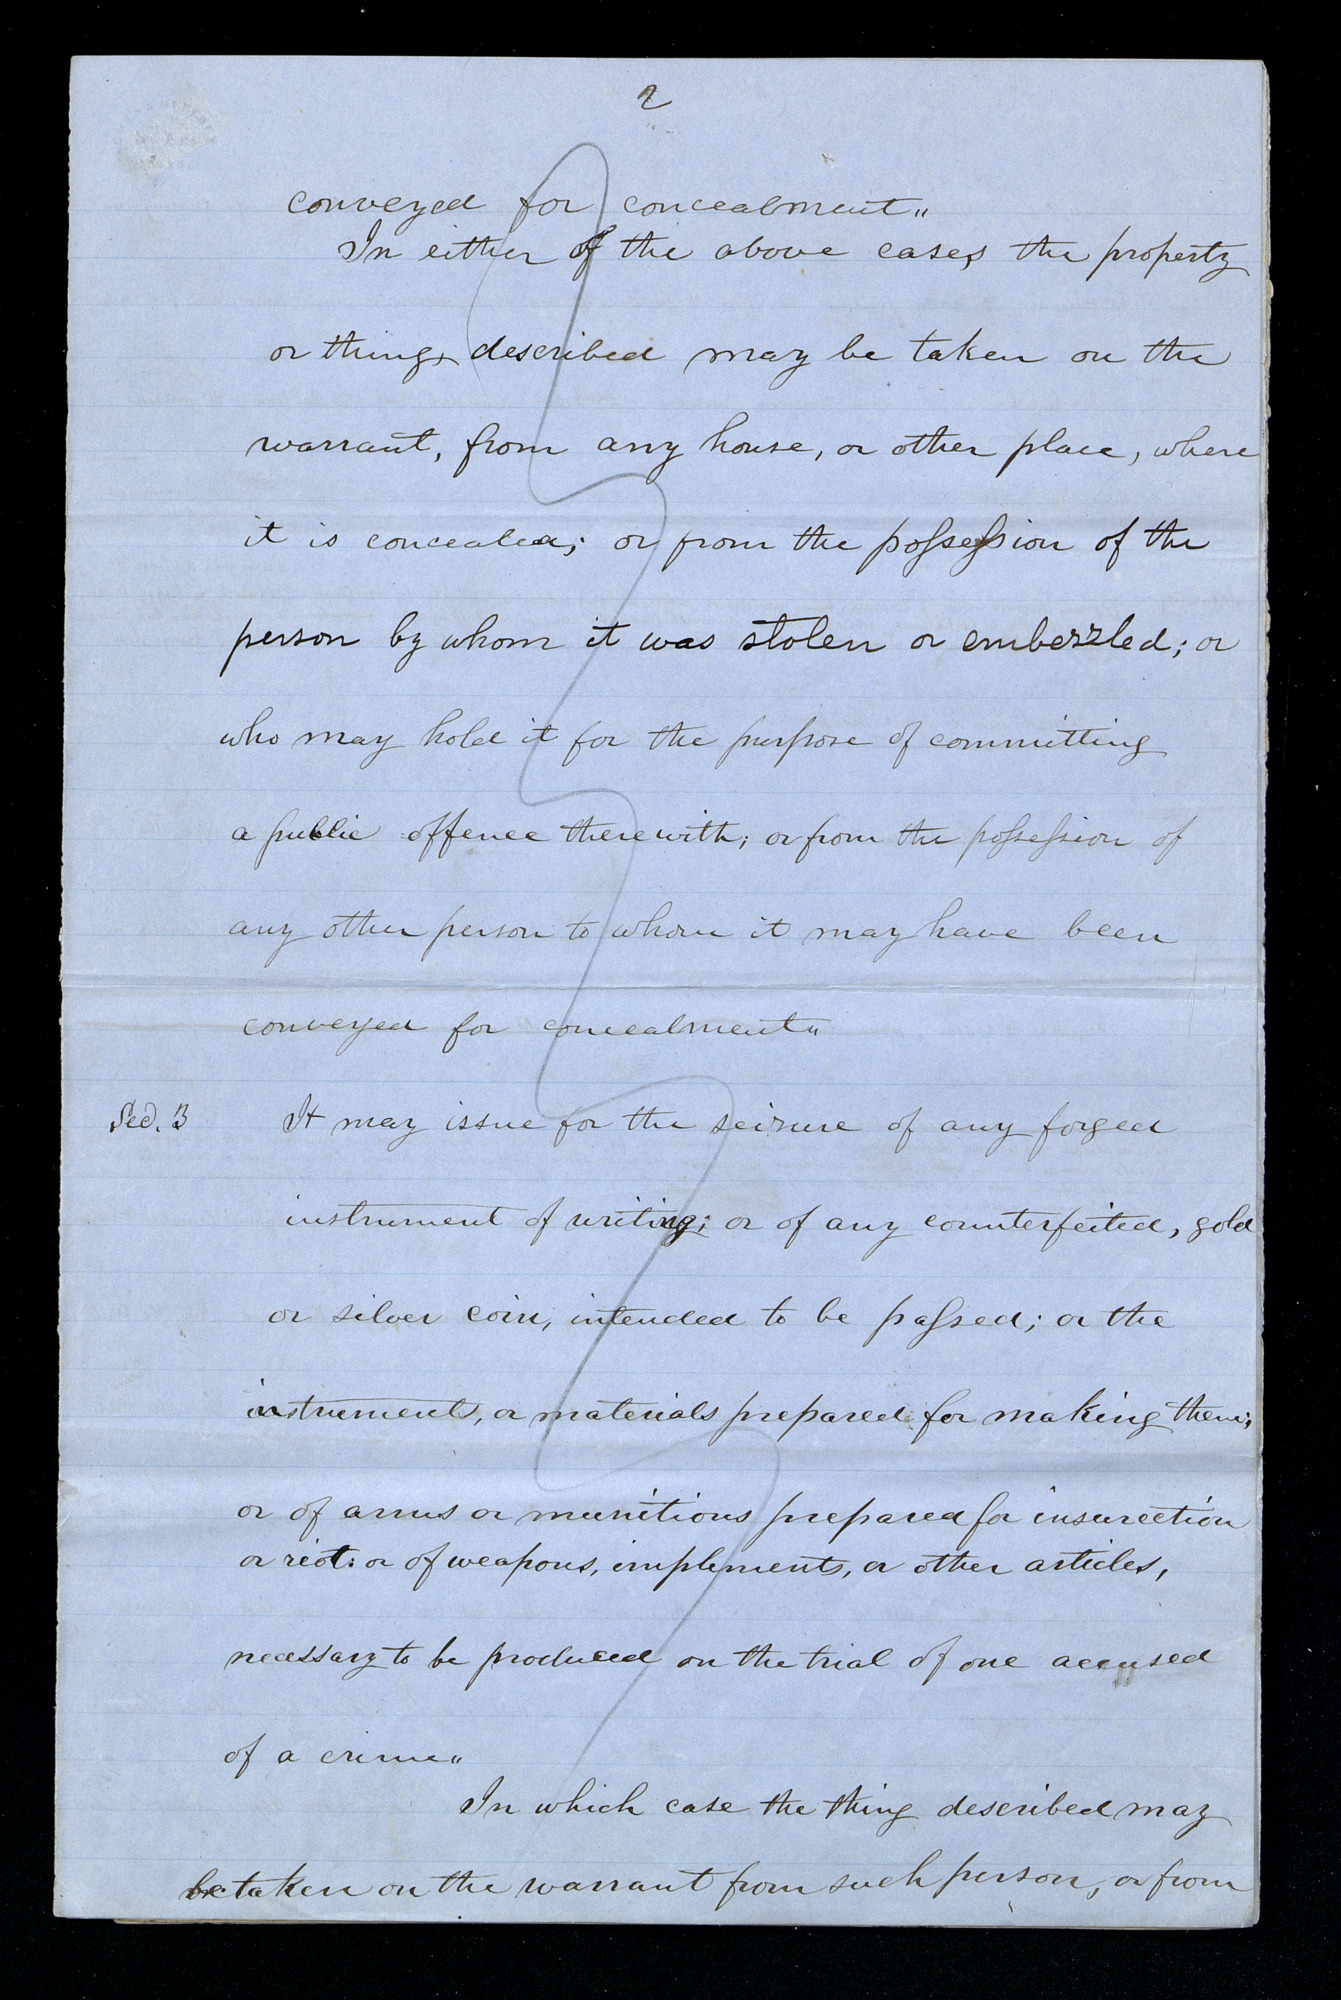 2
conveyed for concealment"
In either of the above cases the property
or things described may be taken on the
warrant, from any house, or other place, where
it is concealed; or from the possession of the
person by whom it was stolen or embezzled; or
who may hold it for the purpose of committing
a public offence therewith; or from the possession of
any other person to whom it may have been
conveyed for concealment"
Sec. 3 It may issue for the seizure of any forged
instrument of writing; or of any counterfeited, gold
or silver coin, intended to be passed; or the
instruments, or materials prepared for making them;
or of arms or munitions prepared for insurection
or riot: or of weapons, implements, or other articles,
necessary to be produced on the trial of one accused
of a crime"
In which case the thing described may
be taken on the warrant from such person, or from